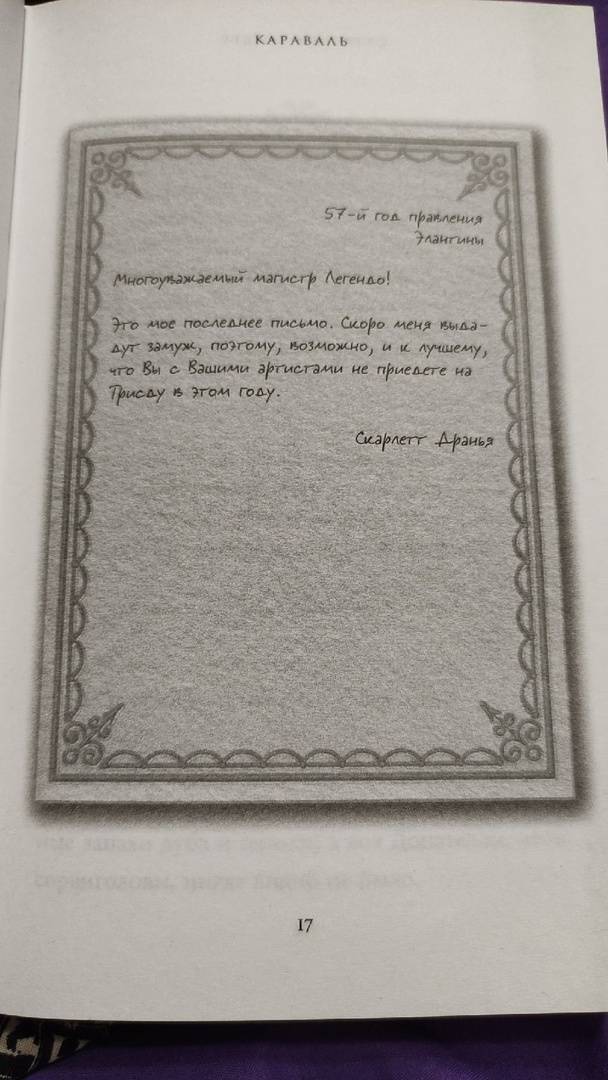 КАРАВАЛЬ
57-й год правления
Элантины
Многоуважаемый магистр Легендо!
Это мое последнее письмо. Скоро меня выда-
дут замуж, поэтому, возможно, и к лучшему,
что Вы с Вашими артистами не приедете на
Трисду в этом году.
Скарлетт Дранья
17